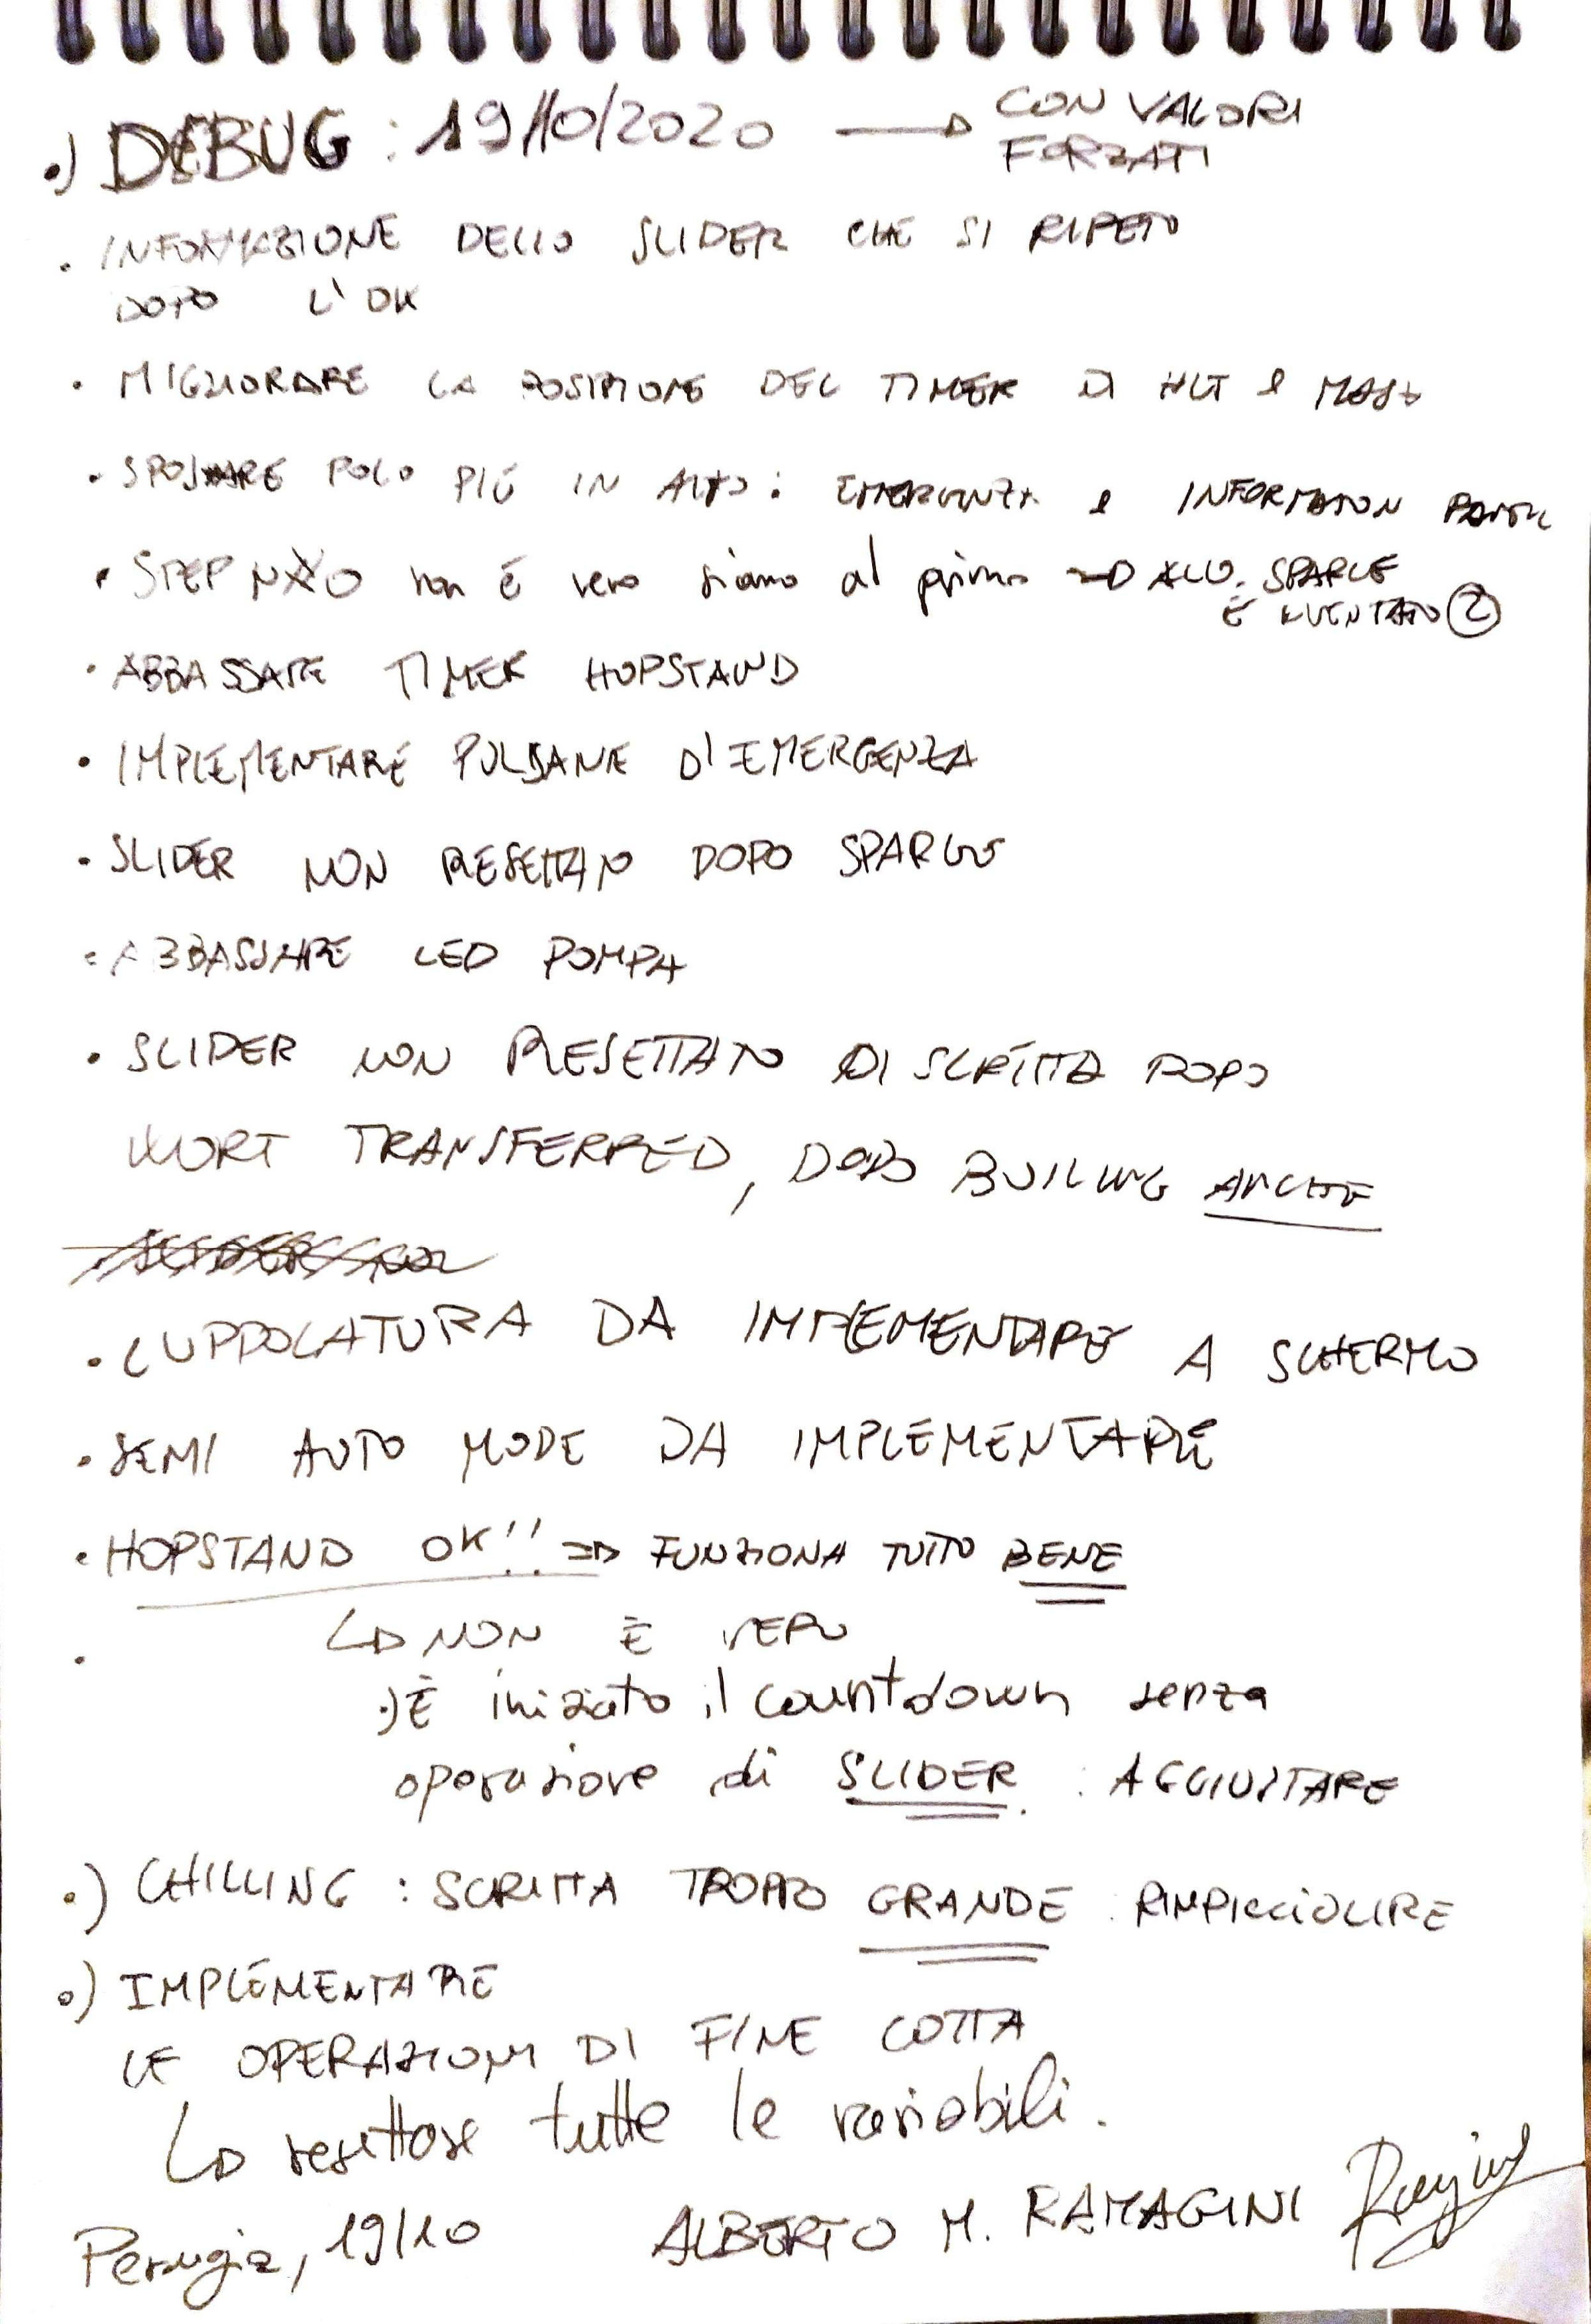 .) DEBUG : 19/10/2020 → CON VALORI
FORZATI
. INFORMAZIONE DELLO SLIDER CHE SI RIPETO
DOPO L'OK
. MIGLIORARE LA POSIZIONE DEL TIMER DI HLT e MASH
. SPOSTARE POCO PIÙ IN ALTO : EMERGENZA e INFORMATION PANEL
. STEP NO non è vero siamo al primo → ALLO SPARGE
È DIVENTATO 2
. ABBASSARE TIMER HOPSTAND
. IMPLEMENTARE PULSANTE D'EMERGENZA
. SLIDER NON RESETTATO DOPO SPARGE
. ABBASSARE LED POMPA
. SLIDER NON RESETTATO DI SCRITTA DOPO
WORT TRANSFERRED, DOPO BOILING ANCHE
. LUPPOLATURA DA IMPLEMENTARE A SCHERMO
. SEMI AUTO MODE DA IMPLEMENTARE
. HOPSTAND OK!! ⇒ FUNZIONA TUTTO BENE
↳ NON È VERO
.) È iniziato il countdown senza
operazione di SLIDER : AGGIUSTARE
.) CHILLING : SCRITTA TROPPO GRANDE : RIMPICCIOLIRE
.) IMPLEMENTARE
LE OPERAZIONI DI FINE COTTA
↳ resettare tutte le variabili.
Perugia, 19/10 ALBERTO M. RAMAGINI